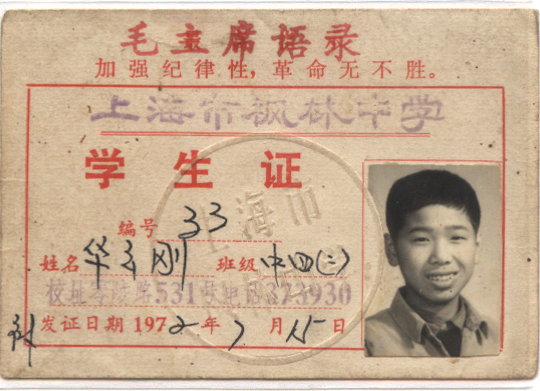 毛主席语录
加强纪律性，革命无不胜。
上海市枫林中学
学生证
编号 33
姓名 华 刚 班级 中四(二)
校址 路531号电话373930
发证日期 1972年7月15日
上海市